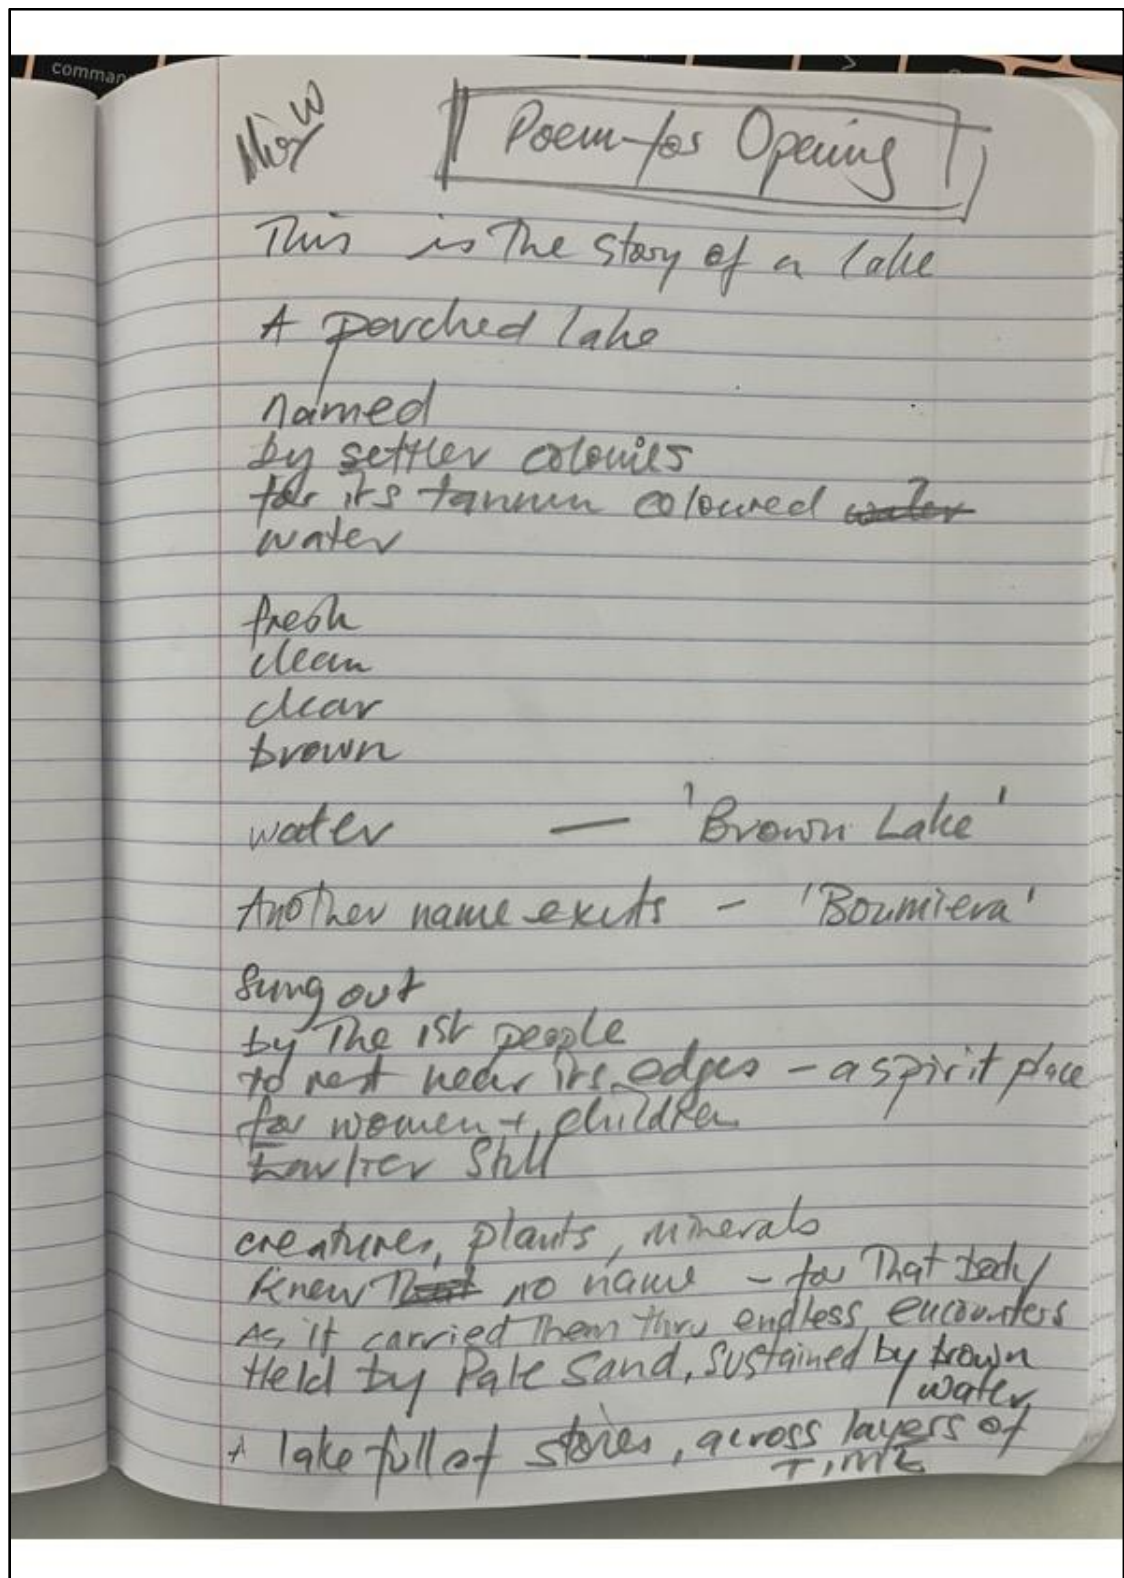 comman
Poem for Opening
This is The Story of a lake
A parched lake
named
by settler colonies
for its tannin coloured water
water
fresh
clean
clear
brown
water — 'Brown Lake'
Another name exists - 'Boumiera'
Sung out
by The 1st people
to rest near its edges - a spirit place
for women + children
Earlier Still
creatures, plants, minerals
knew That no name - for That body
As it carried Them thru endless encounters
Held by Pale Sand, sustained by brown
water
+ lake full of stories, across layers of
TIME